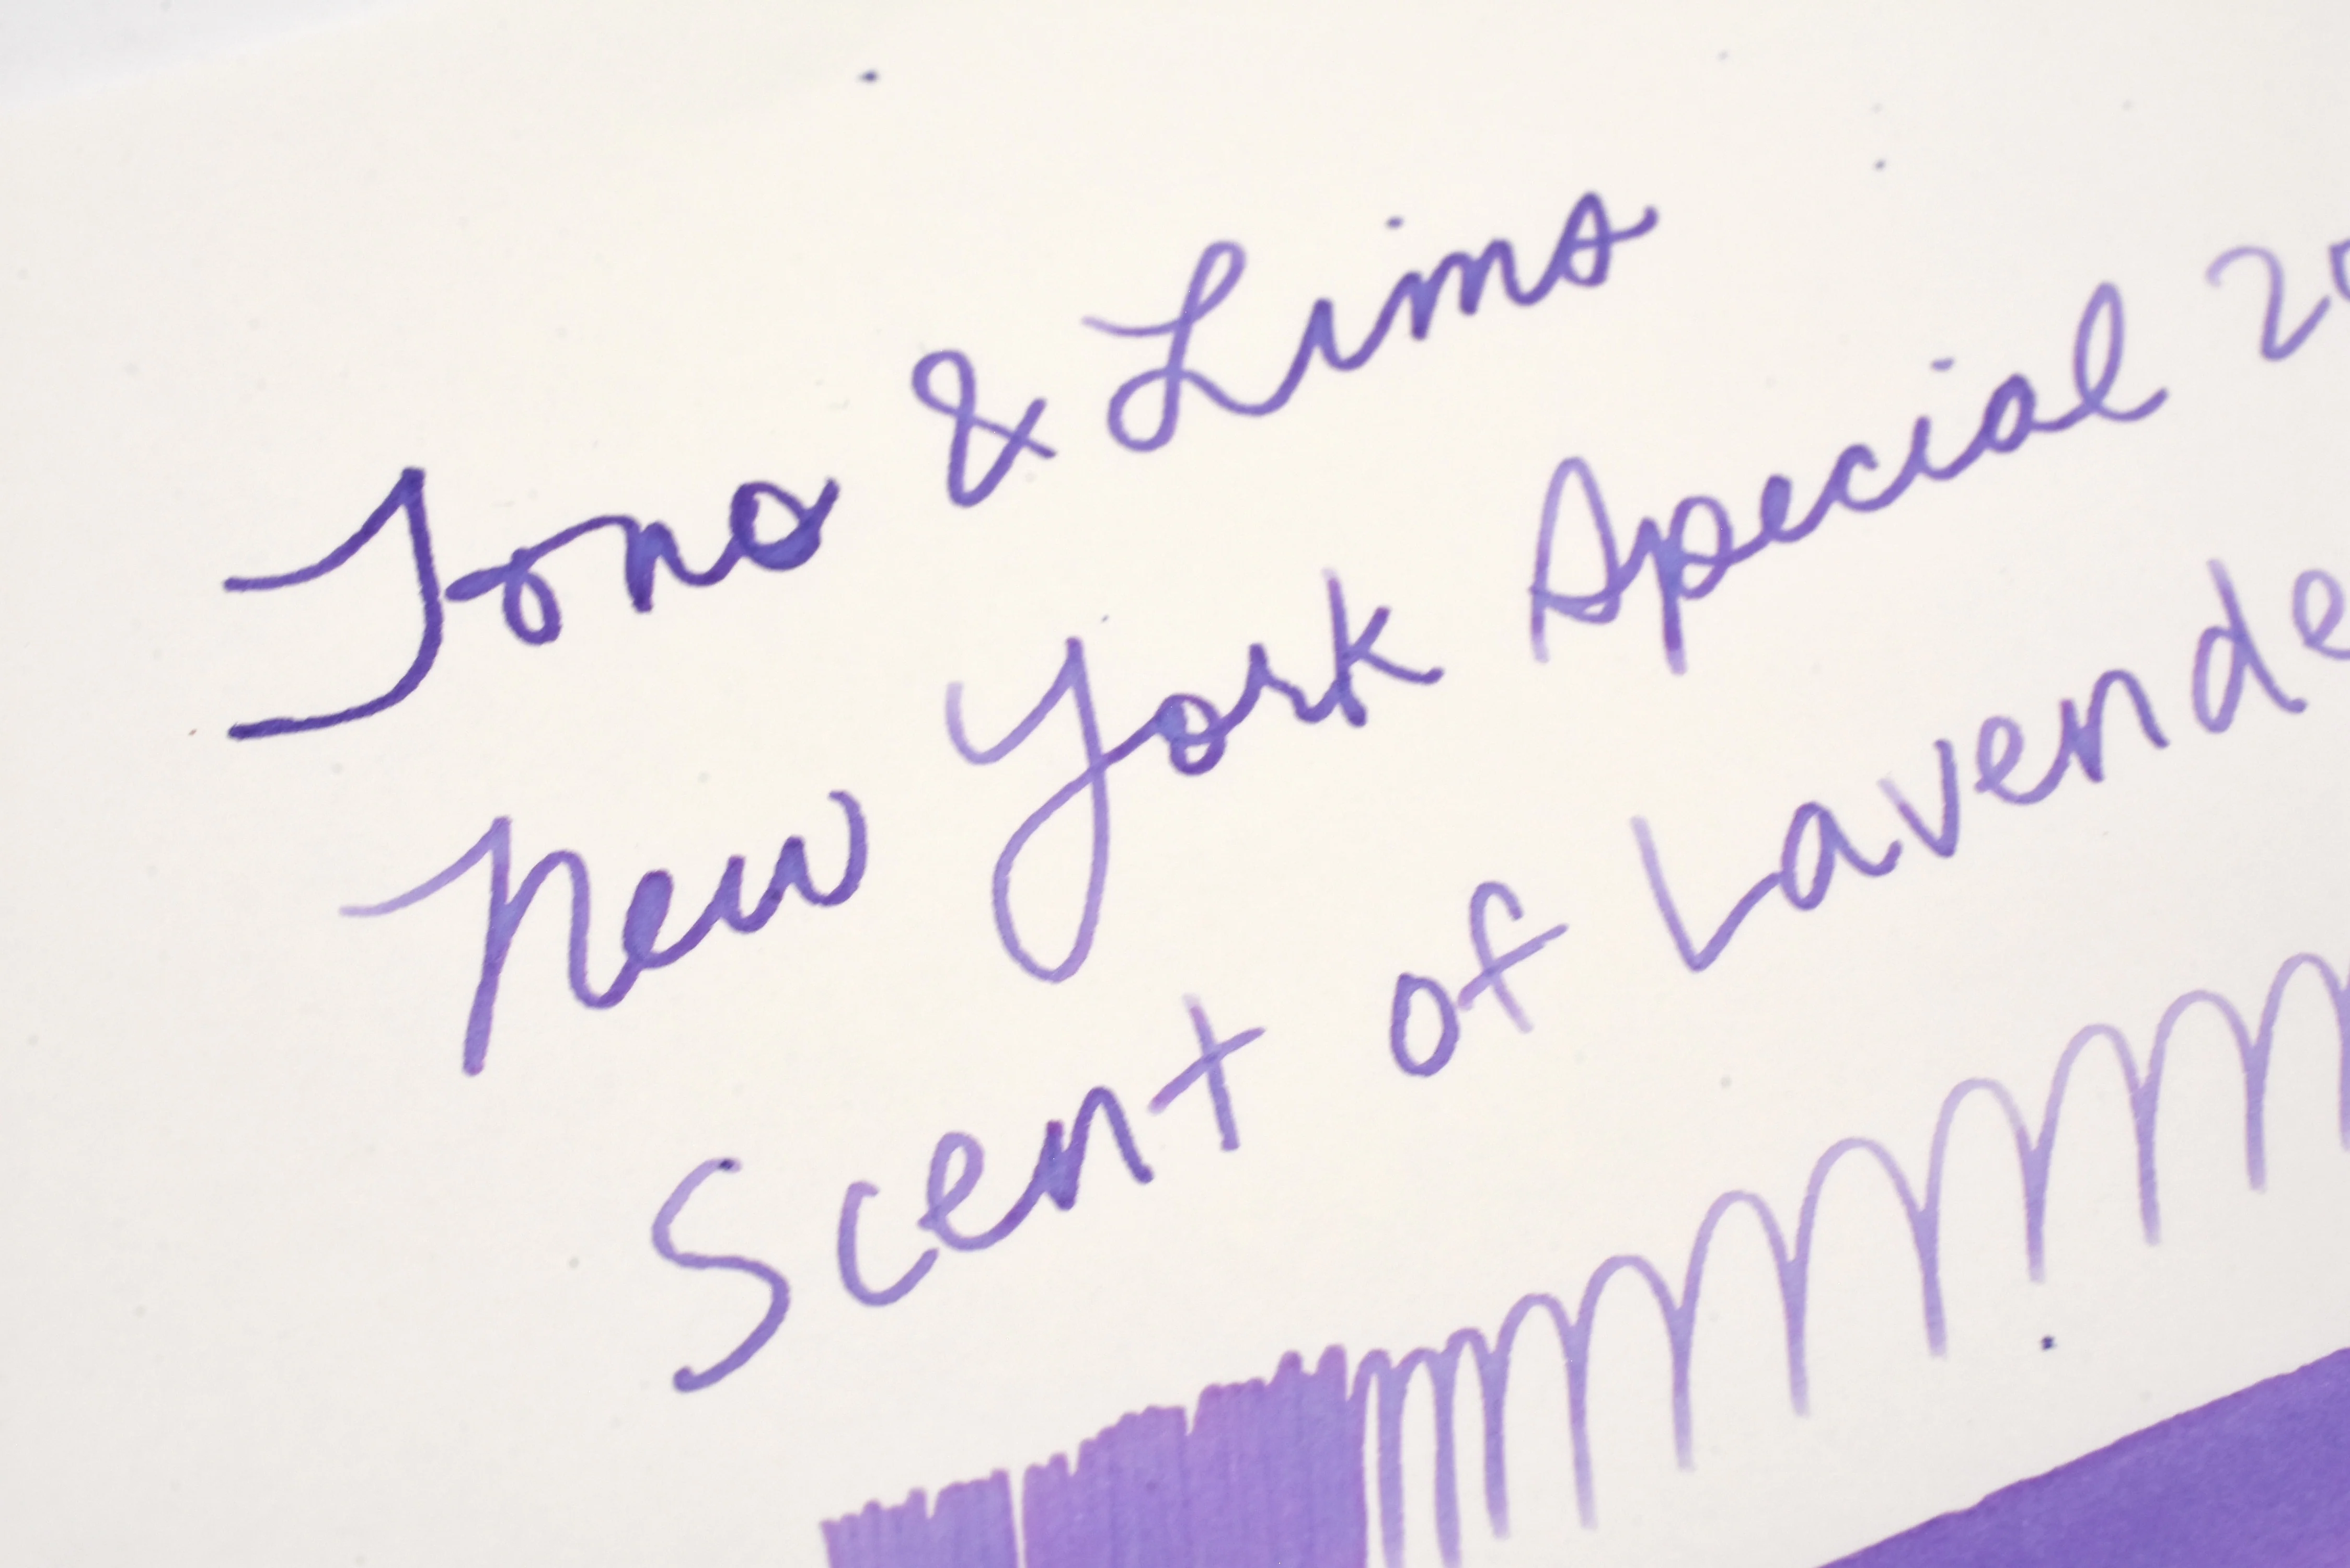 Tono & Lims
New York Special 20
Scent of Lavende